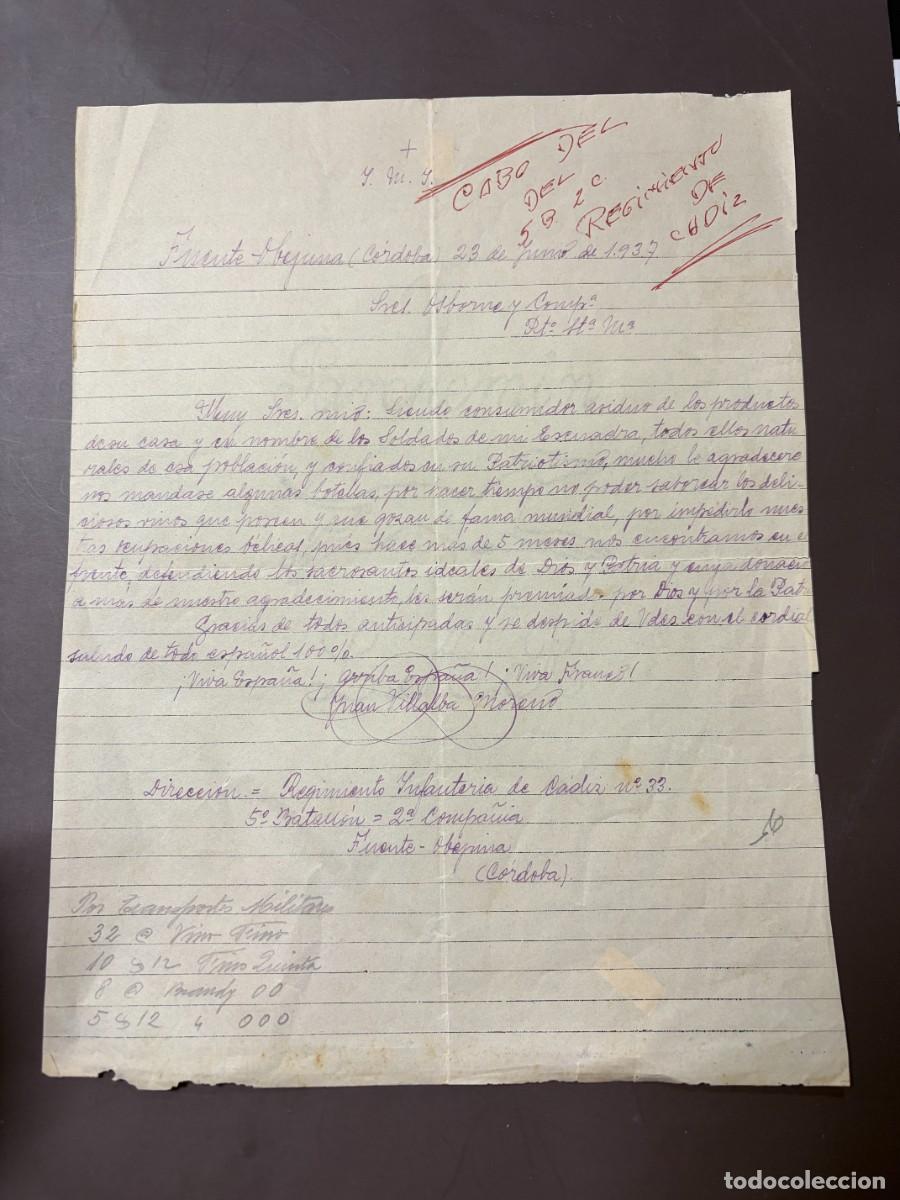 +
J. M. J.
CABO DEL
DEL
5 B. 2 C.
REGIMIENTO
DE
CADIZ
Fuente-Obejuna (Córdoba) 23 de Junio de 1.937
Sres. Osborne y Compª
Ptº. Stª Mª
Muy Sres. mio: Siendo consumidor asiduo de los productos
de su casa y en nombre de los Soldados de mi Escuadra, todos ellos natu-
rales de esa población, y confiados en su Patriotismo, mucho le agradecere
nos mandase algunas botellas, por hacer tiempo no poder saborear los deli-
ciosos vinos que poseen y que gozan de fama mundial, por impedirlo nues
tras ocupaciones bélicas, pués hace más de 5 meses nos encontramos en el
frente, defendiendo los sacrosantos ideales de Dios y Patria y cuya donació
a más de nuestro agradecimiento, les serán premiada por Dios y por la Pat-
Gracias de todos anticipadas y se despide de Vdes con el cordial
saludo de todo español 100%.
¡Viva España! ¡Arriba España! ¡Viva Franco!
Juan Villalba Moreno
Dirección = Regimiento Infanteria de Cádiz nº 33.
5º Batallón = 2ª Compañia
Fuente-Obejuna
(Córdoba).
Por Transportes Militares
32 @ Vino Fino
10 12 Fino Quinta
8 @ Brandy 00
5 12 " 000
todocoleccion